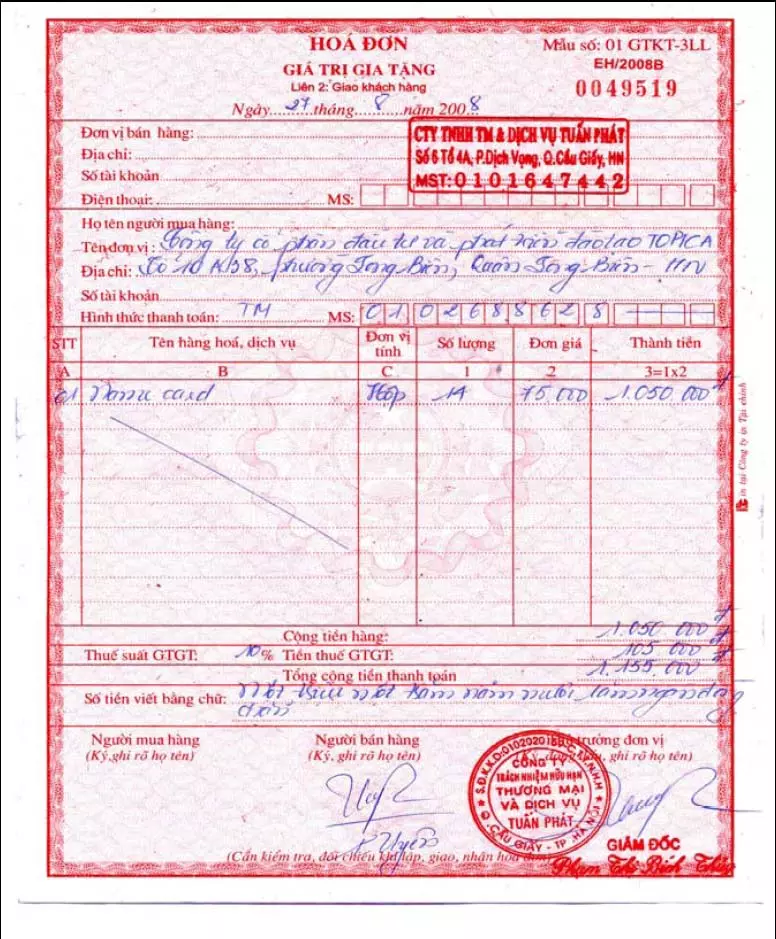 HOÁ ĐƠN
GIÁ TRỊ GIA TĂNG
Liên 2: Giao khách hàng
Mẫu số: 01 GTKT-3LL
EH/2008B
0049519
Ngày 27 tháng 8 năm 2008
Đơn vị bán hàng:
Địa chỉ:
Số tài khoản
Điện thoại: MS:
CTY TNHH TM & DỊCH VỤ TUẤN PHÁT
Số 6 Tổ 4A, P.Dịch Vọng, Q.Cầu Giấy, HN
MST: 0101647442
Họ tên người mua hàng:
Tên đơn vị: Công ty cổ phần đầu tư và phát triển đào tạo TOPICA
Địa chỉ: Số 10 A38, phường Long Biên, Quận Long Biên - HN
Số tài khoản
Hình thức thanh toán: TM MS: 0102688628
STT Tên hàng hoá, dịch vụ Đơn vị tính Số lượng Đơn giá Thành tiền
A B C 1 2 3=1x2
01 Name card Hộp 14 75.000 1.050.000đ
Cộng tiền hàng: 1.050.000đ
Thuế suất GTGT: 10% Tiền thuế GTGT: 105.000đ
Tổng cộng tiền thanh toán 1.155.000đ
Số tiền viết bằng chữ: Một triệu một trăm năm mươi lăm ngàn đồng
chẵn
Người mua hàng Người bán hàng Thủ trưởng đơn vị
(Ký, ghi rõ họ tên) (Ký, ghi rõ họ tên) (Ký, đóng dấu, ghi rõ họ tên)
CÔNG TY
TRÁCH NHIỆM HỮU HẠN
THƯƠNG MẠI
VÀ DỊCH VỤ
TUẤN PHÁT
Q. CẦU GIẤY - TP HÀ NỘI
Uyên
GIÁM ĐỐC
(Cần kiểm tra, đối chiếu khi lập, giao, nhận hoá đơn)
Phạm Thị Bích Thủy
in tại Công ty in Tài chính